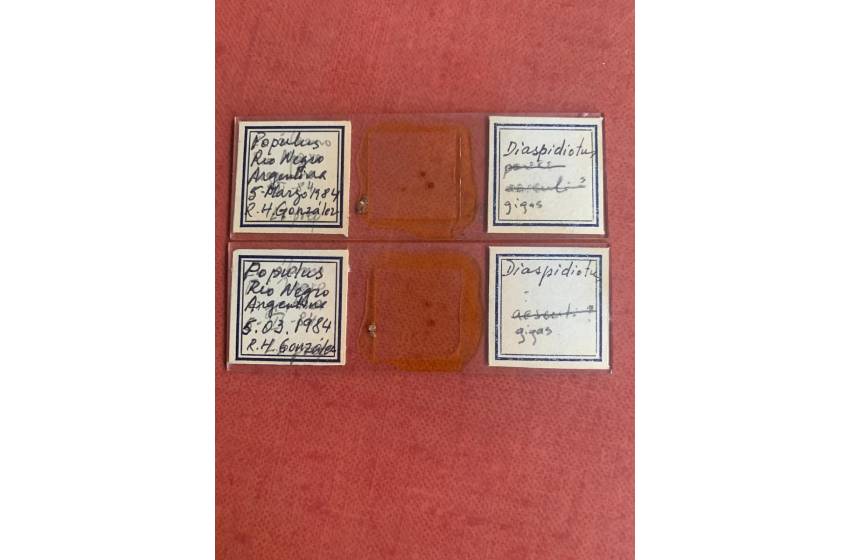 Populus
Rio Negro
Argentina
5-Marzo 1984
R.H. González
Diaspidiotus
aesculi
gigas
Populus
Rio Negro
Argentina
5.03.1984
R.H. González
Diaspidiotu
aesculi ?
gigas